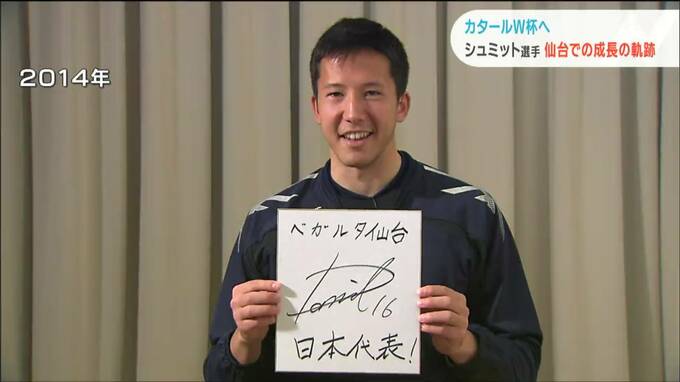 カタールW杯へ
シュミット選手 仙台での成長の軌跡
2014年
ベガルタ仙台
16
日本代表!